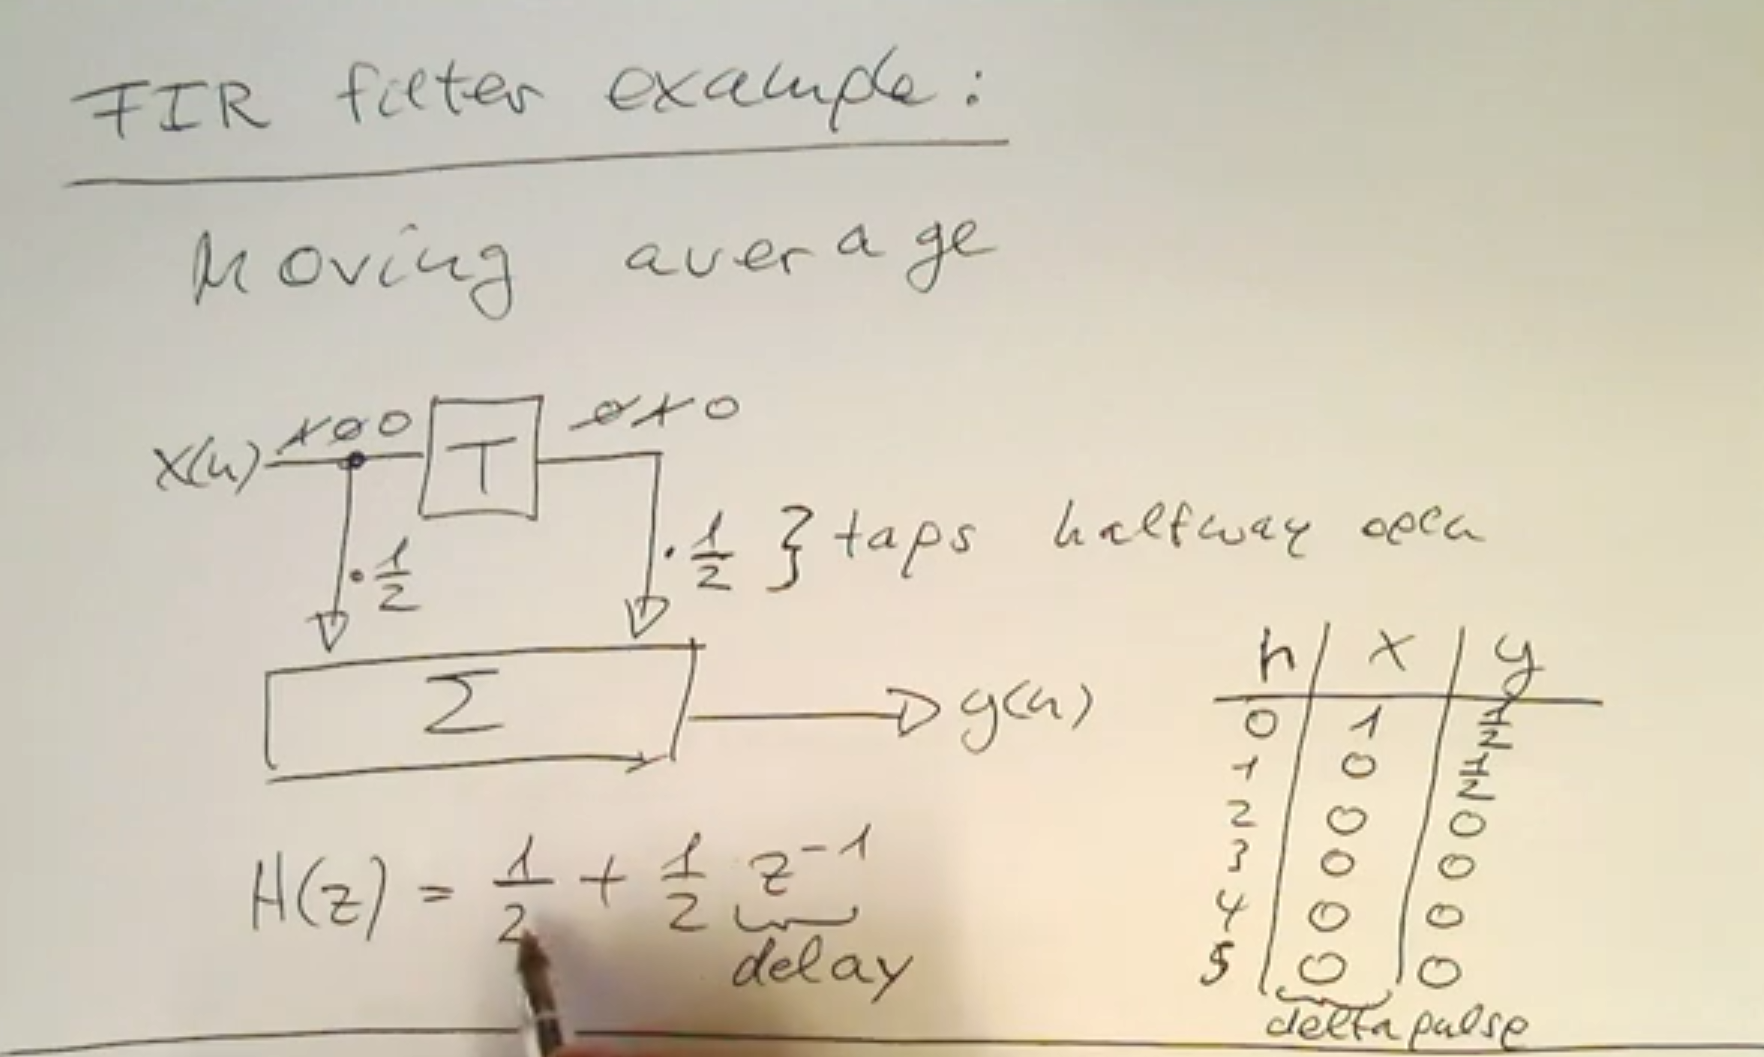 FIR filter example:
Moving average
x(n) 1 0 0 T 0 1 0
· 1/2 · 1/2 } taps halfway open
Σ y(n)
H(z) = 1/2 + 1/2 z⁻¹
delay
n | x | y
0 | 1 | 1/2
1 | 0 | 1/2
2 | 0 | 0
3 | 0 | 0
4 | 0 | 0
5 | 0 | 0
delta pulse